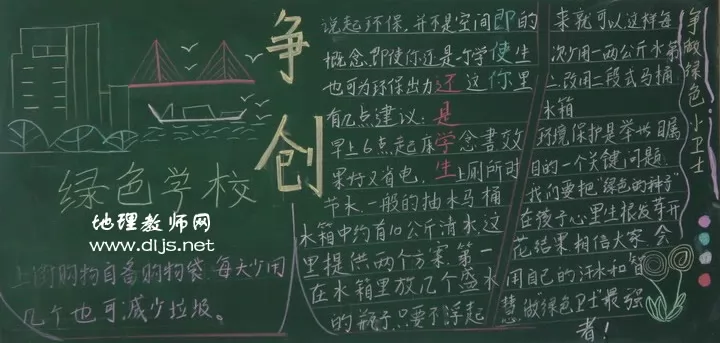 争创
绿色学校
地理教师网
www.dljs.net
上街购物自备购物袋，每天少用
几个也可减少垃圾。
说起环保，并不是空间即的
概念，即使你还是一个学使生
也可为环保出力还这你里
有几点建议：是
早上6点起床学念書效
果好又省电，生上厕所时
节水，一般的抽水马桶
水箱中约有10公斤清水，这
里提供两个方案，第一
在水箱里放几个盛水
的瓶子，只要不浮起
来就可以，这样每
次少用一两公斤水，第
二改用二段式马桶
水箱
环境保护是举世瞩
目的一个关键问题，
我们要把“绿色的种子”
在孩子心里生根发芽开
花结果，相信大家会
用自己的汗水和智
慧，做绿色卫士“最强
者！
争做绿色小卫士